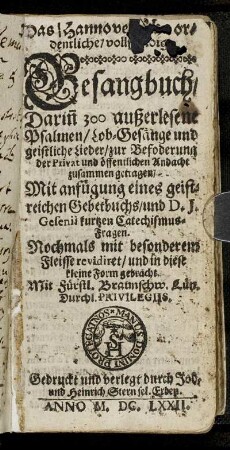 Das Hannoverische or-
dentliche / vollständige
Gesangbuch /
Dariñ 300 außerlesene
Psalmen / Lob-Gesänge und
geistliche Lieder / zur Beföderung
der Privat und öffentlichen Andacht
zusammen getragen /
Mit anfügung eines geist-
reichen Gebetbuchs / und D. J.
Gesenii kurtzen Catechismus-
Fragen.
Nochmals mit besonderem
Fleisse revidiret / und in diese
kleine Form gebracht.
Mit Fürstl. Braunschw. Lün.
Durchl. PRIVILEGIIS.
Gedruckt und verlegt durch Joh.
und Heinrich Stern sel. Erben.
ANNO M. DC. LXXII.